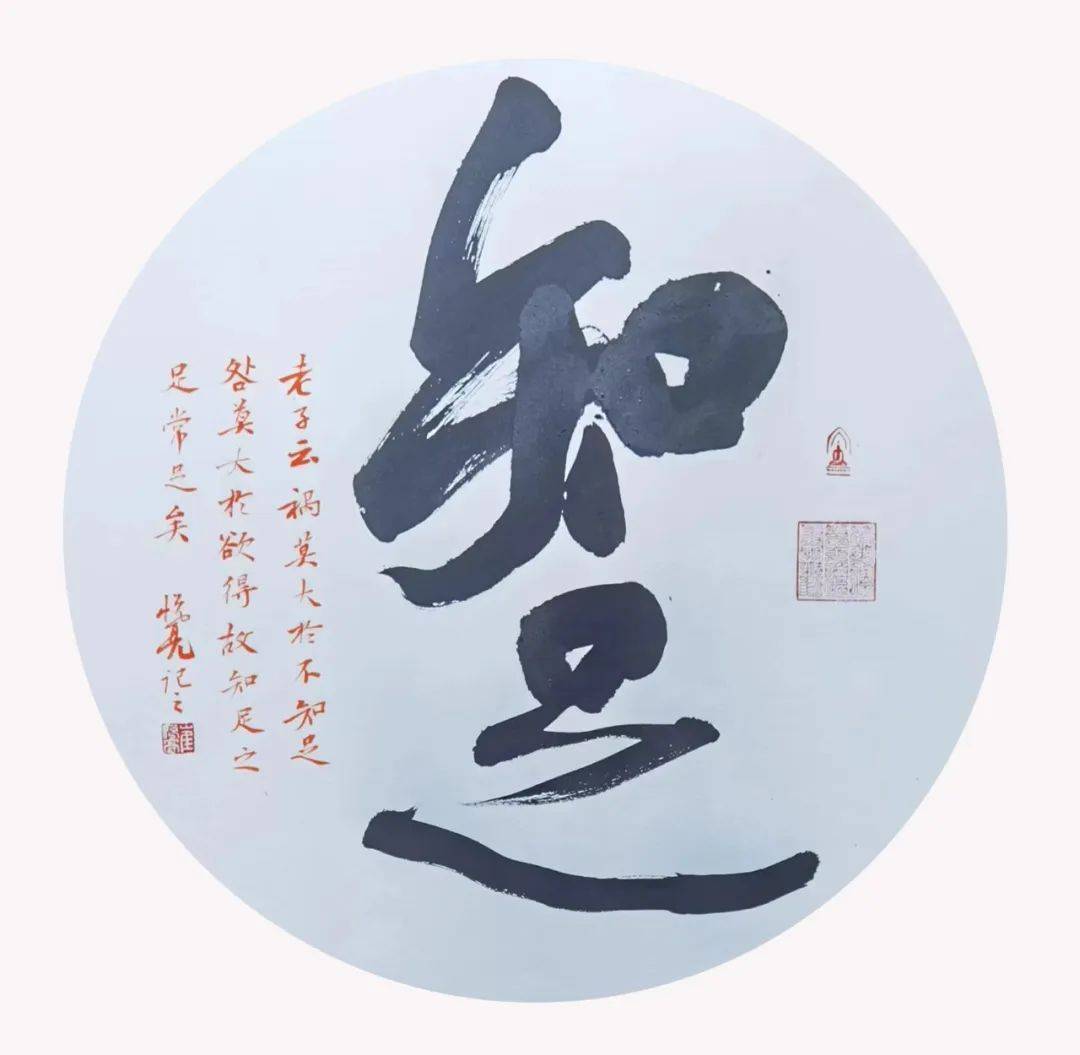 知足
老子云祸莫大於不知足
咎莫大於欲得故知足之
足常足矣
亮记之